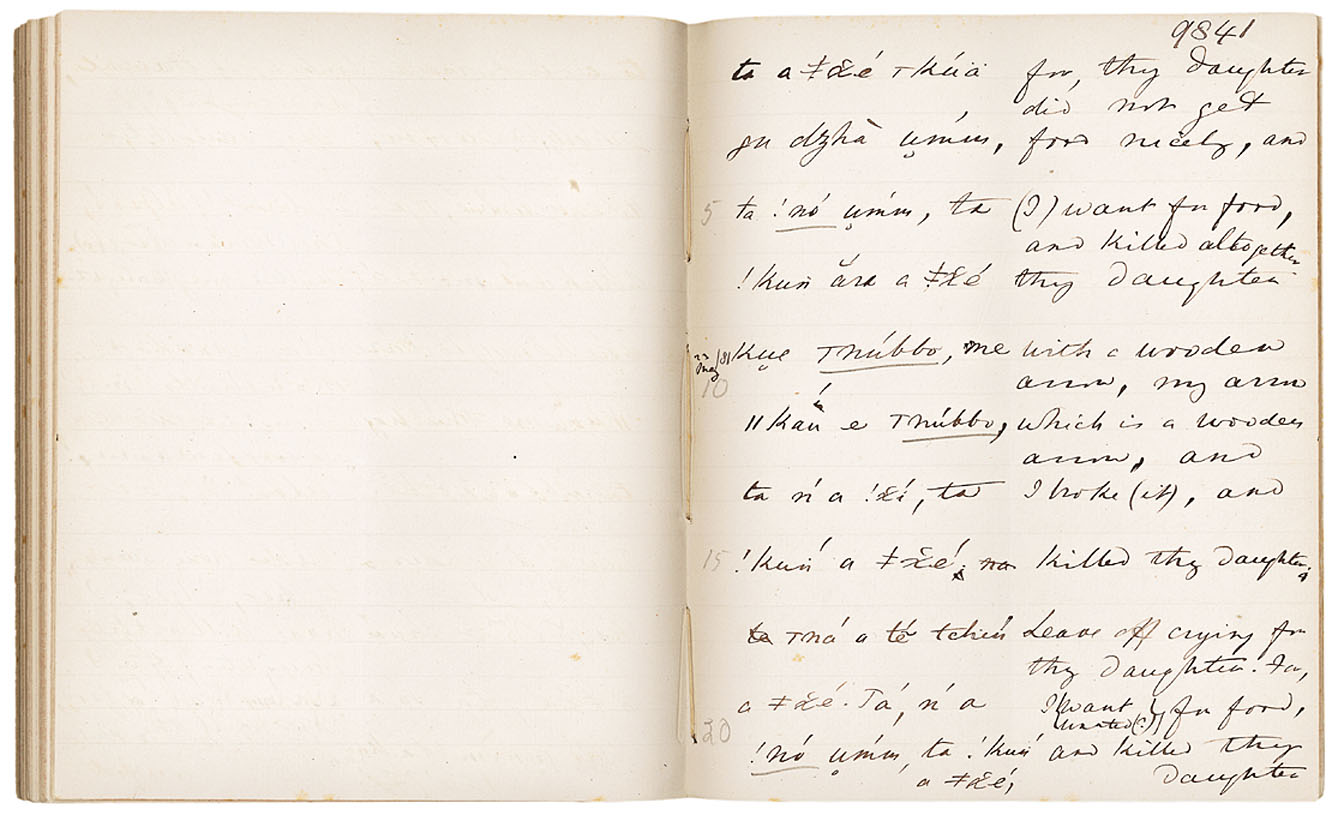 9841
ta a ǂx̌é ꞇkúä for, thy daughter
did not get
gu dzhà u̬mm, food nicely, and
5 ta !nó u̬mm, ta (I) want for food,
and killed altogether
!kuṅ ăra a ǂx̌é thy daughter
22 May /81 ku̬e ꞇnúbbo, me with a wooden
10 arrow, my arrow
ǁkaṅ e ꞇnúbbo, which is a wooden
arrow, and
ta ń a !x̌í, ta I broke (it), and
15 !kuṅ a ǂx̌é; killed thy daughter;
ꞇná a té tchiṅ Leave off crying for
thy daughter. For,
a ǂx̌é. Tá, ń a I want for food,
20 !nó u̬mm, ta !kuṅ and killed thy
a ǂx̌é, daughter